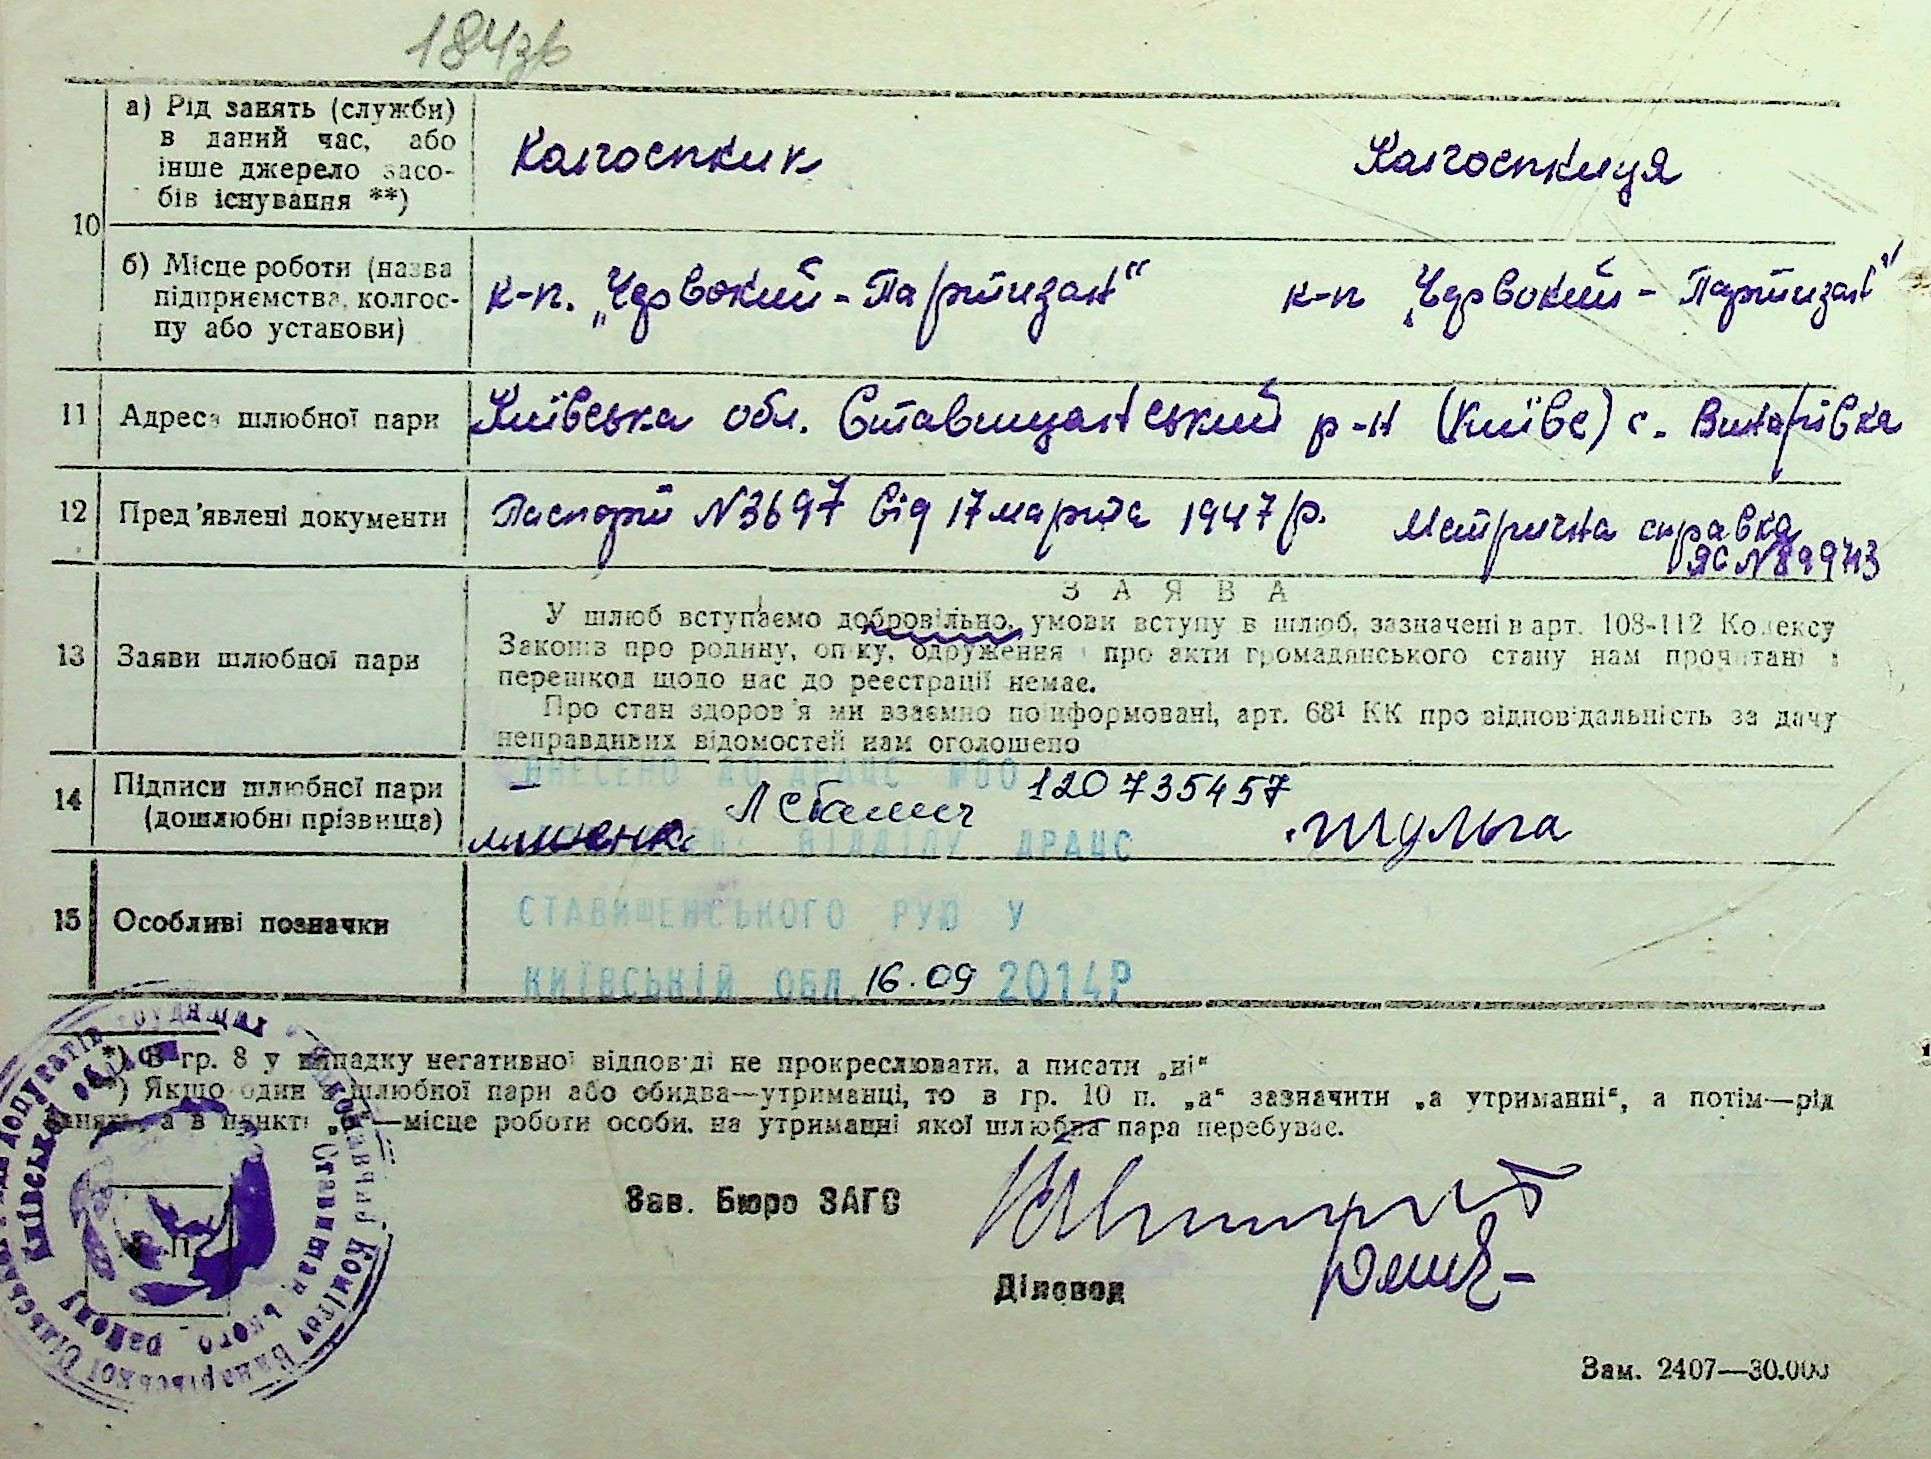 184зв
10
а) Рід занять (служби)
в даний час, або
інше джерело засо-
бів існування **)
Колгоспник
Колгоспниця
б) Місце роботи (назва
підприємства, колгос-
пу або установи)
к-п. „Червоний-Партизан“
к-п „Червоний-Партизан“
11 Адреса шлюбної пари
Київська обл. Ставищанський р-н (Київс) с. Винарівка
12 Пред'явлені документи
Паспорт №3697 від 17 марта 1947 р.
Метрична справка
ЯС №89943
13 Заяви шлюбної пари
ЗАЯВА
У шлюб вступаємо добровільно, умови вступу в шлюб, зазначені в арт. 108-112 Кодексу
Законів про родину, опіку, одруження і про акти громадянського стану нам прочитані і
перешкод щодо нас до реєстрації немає.
Про стан здоров'я ми взаємно поінформовані, арт. 68¹ КК про відповідальність за дачу
неправдивих відомостей нам оголошено
14 Підписи шлюбної пари
(дошлюбні прізвища)
ВНЕСЕНО ДО ДРАЦС №00
120735457
Шульга
ВІДДІЛУ ДРАЦС
15 Особливі позначки
СТАВИЩЕНСЬКОГО РУЮ У
КИЇВСЬКІЙ ОБЛ. 16.09 2014Р
*) В гр. 8 у випадку негативної відповіді не прокреслювати, а писати „ні“
**) Якщо один з шлюбної пари або обидва—утриманці, то в гр. 10 п. „а“ зазначити „а утриманні“, а потім—рід
занять, а в пункті „ —місце роботи особи, на утриманні якої шлюбна пара перебуває.
Зав. Бюро ЗАГС
Діловод
М. П.
Виконавчий Комітет Винарівської Сільської Ради депутатів трудящих
Ставищанського району Київської області
Зам. 2407—30.000